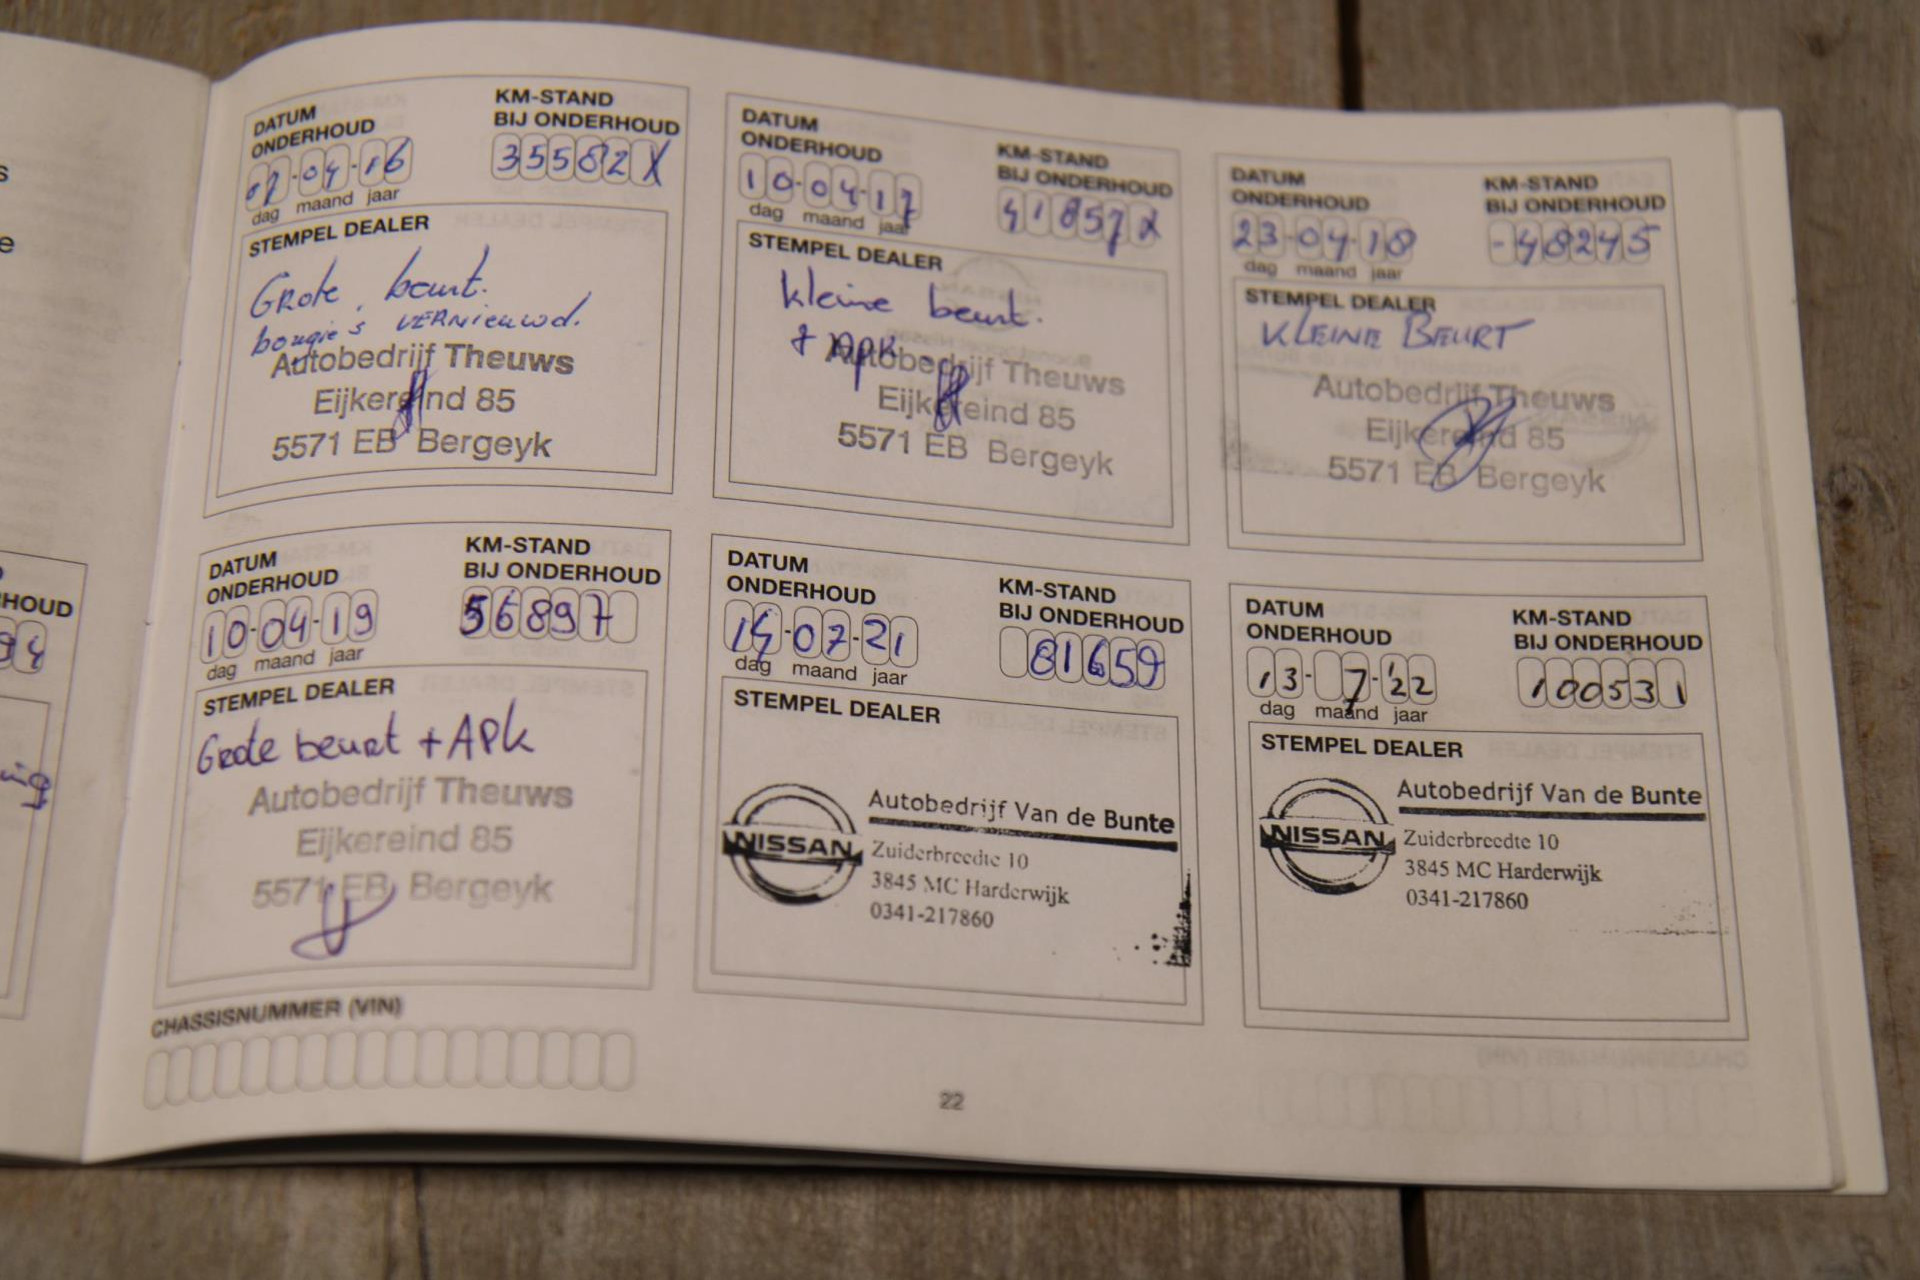 s
e
HOUD
94
ing
DATUM
ONDERHOUD
KM-STAND
BIJ ONDERHOUD
07-04-16
35582X
dag maand jaar
STEMPEL DEALER
Grote beurt.
bougie's VERNieuwd.
Autobedrijf Theuws
Eijkereind 85
5571 EB Bergeyk
DATUM
ONDERHOUD
KM-STAND
BIJ ONDERHOUD
10-04-17
41857X
dag maand jaar
STEMPEL DEALER
kleine beurt.
+ APK
Autobedrijf Theuws
Eijkereind 85
5571 EB Bergeyk
DATUM
ONDERHOUD
KM-STAND
BIJ ONDERHOUD
23-04-18
-48245
dag maand jaar
STEMPEL DEALER
KLEINE BEURT
Autobedrijf Theuws
Eijkereind 85
5571 EB Bergeyk
DATUM
ONDERHOUD
KM-STAND
BIJ ONDERHOUD
10-04-19
56897
dag maand jaar
STEMPEL DEALER
Grote beurt + APK
Autobedrijf Theuws
Eijkereind 85
5571 EB Bergeyk
DATUM
ONDERHOUD
KM-STAND
BIJ ONDERHOUD
14-07-21
81659
dag maand jaar
STEMPEL DEALER
NISSAN
Autobedrijf Van de Bunte
Zuiderbreedte 10
3845 MC Harderwijk
0341-217860
DATUM
ONDERHOUD
KM-STAND
BIJ ONDERHOUD
13-7-'22
100531
dag maand jaar
STEMPEL DEALER
NISSAN
Autobedrijf Van de Bunte
Zuiderbreedte 10
3845 MC Harderwijk
0341-217860
CHASSISNUMMER (VIN)
22